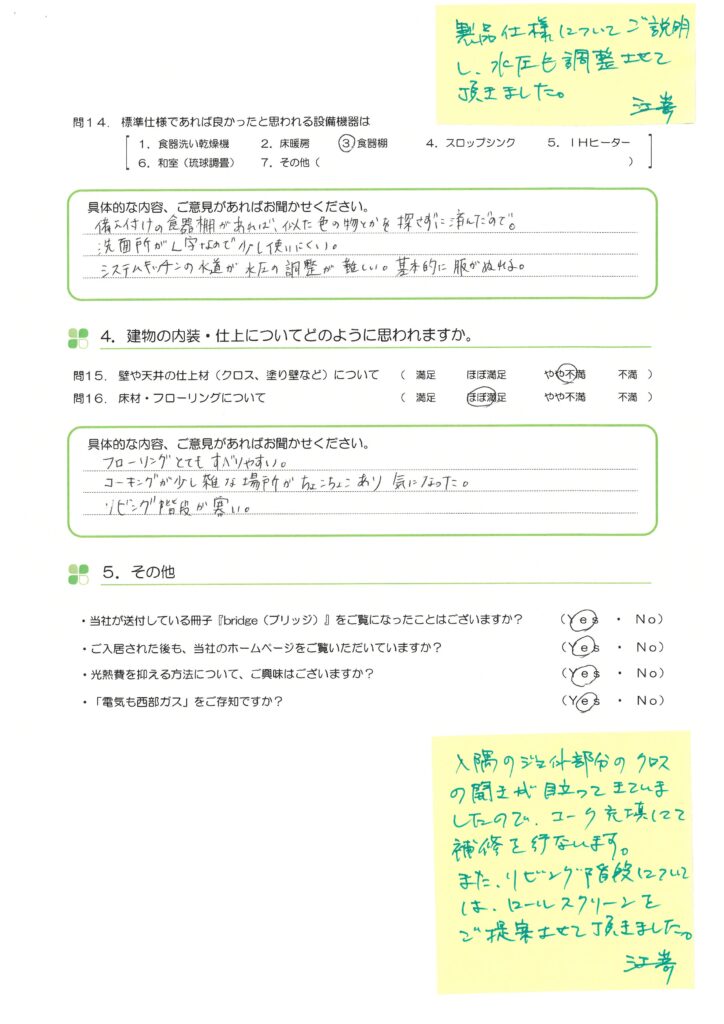 製品仕様についてご説明
し、水圧も調整させて
頂きました。
江嵜
問14. 標準仕様であれば良かったと思われる設備機器は
1. 食器洗い乾燥機 2. 床暖房 ③食器棚 4. スロップシンク 5. IHヒーター
6. 和室(琉球調畳) 7. その他( )
具体的な内容、ご意見があればお聞かせください。
備え付けの食器棚があれば、似た色の物とかを探さずに済んだので。
洗面所がL字なので少し使いにくい。
システムキッチンの水道が水圧の調整が難しい。基本的に服がぬれる。
4. 建物の内装・仕上についてどのように思われますか。
問15. 壁や天井の仕上材(クロス、塗り壁など)について ( 満足 ほぼ満足 やや不満 不満 )
問16. 床材・フローリングについて ( 満足 ほぼ満足 やや不満 不満 )
具体的な内容、ご意見があればお聞かせください。
フローリングとてもすべりやすい。
コーキングが少し雑な場所がちょこちょこあり気になった。
リビング階段が寒い。
5. その他
・当社が送付している冊子『bridge(ブリッジ)』をご覧になったことはございますか? (Yes ・ No)
・ご入居された後も、当社のホームページをご覧いただいていますか? (Yes ・ No)
・光熱費を抑える方法について、ご興味はございますか? (Yes ・ No)
・「電気も西部ガス」をご存知ですか? (Yes ・ No)
入隅のジョイント部分のクロス
の開きが目立ってきていま
したので、コーク充填にて
補修を行ないます。
また、リビング階段について
は、ロールスクリーンを
ご提案させて頂きました。
江嵜